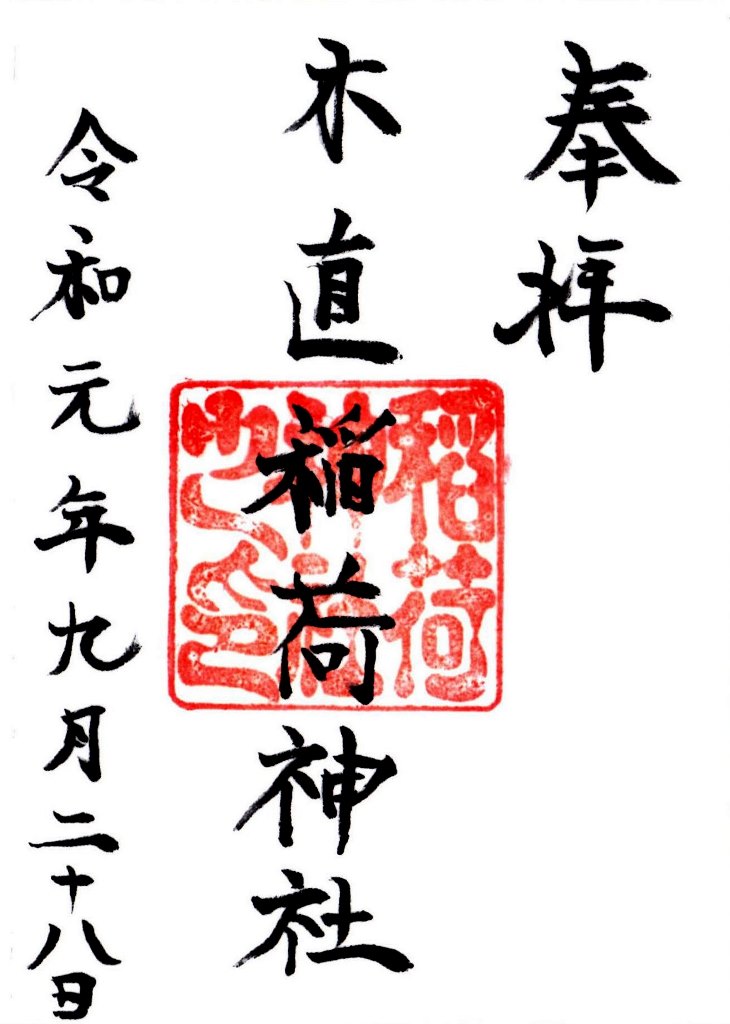 奉拝
木直稲荷神社
稲荷神社之印
令和元年九月二十八日